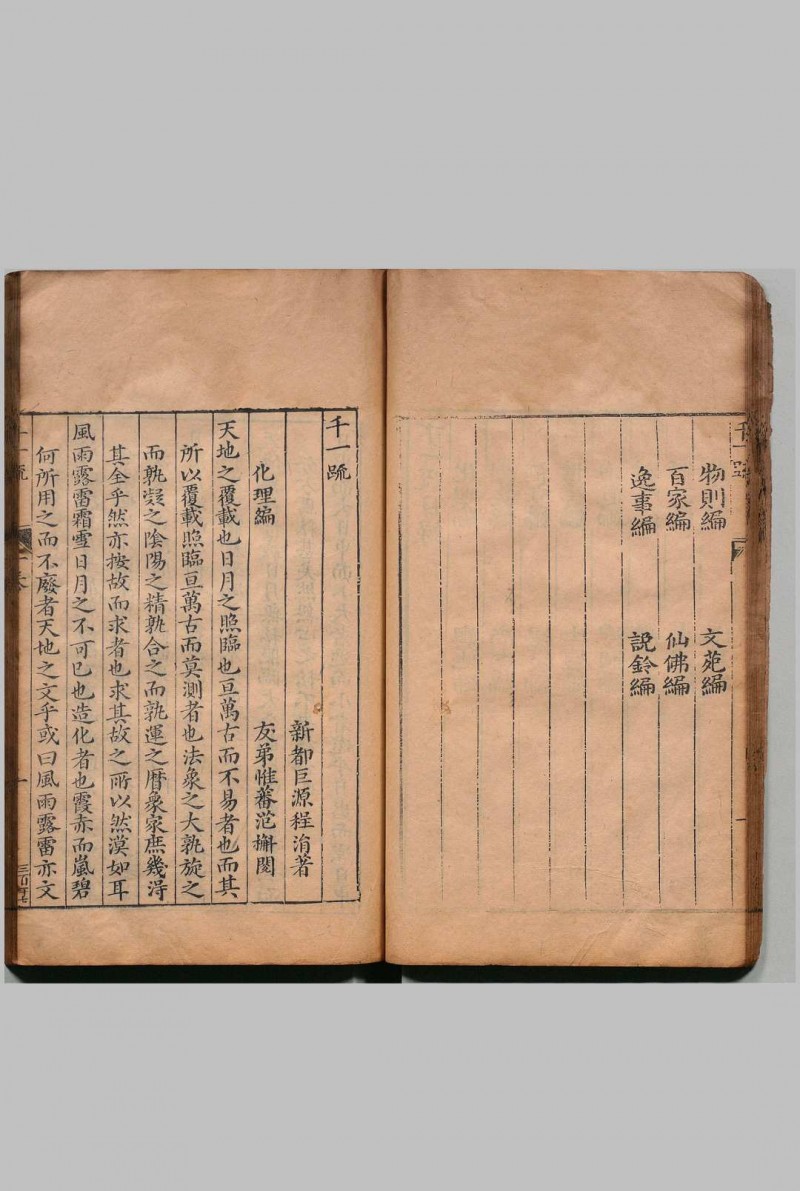 物則編 文苑編
百家編 仙佛編
逸事編 説鈴編
千一疏
新都巨源程涓著
化理編 友弟惟蕃范檞閱
天地之覆載也日月之照臨也亘萬古而不易者也而其
所以覆載照臨亘萬古而莫測者也法象之大孰旋之
而孰凝之陰陽之精孰合之而孰運之曆象家庶幾淂
其全乎然亦按故而求者也求其故之所以然漠如耳
風雨露雷霜雪日月之不可已也造化者也霞赤而嵐碧
何所用之而不廢者天地之文乎或曰風雨露雷亦文